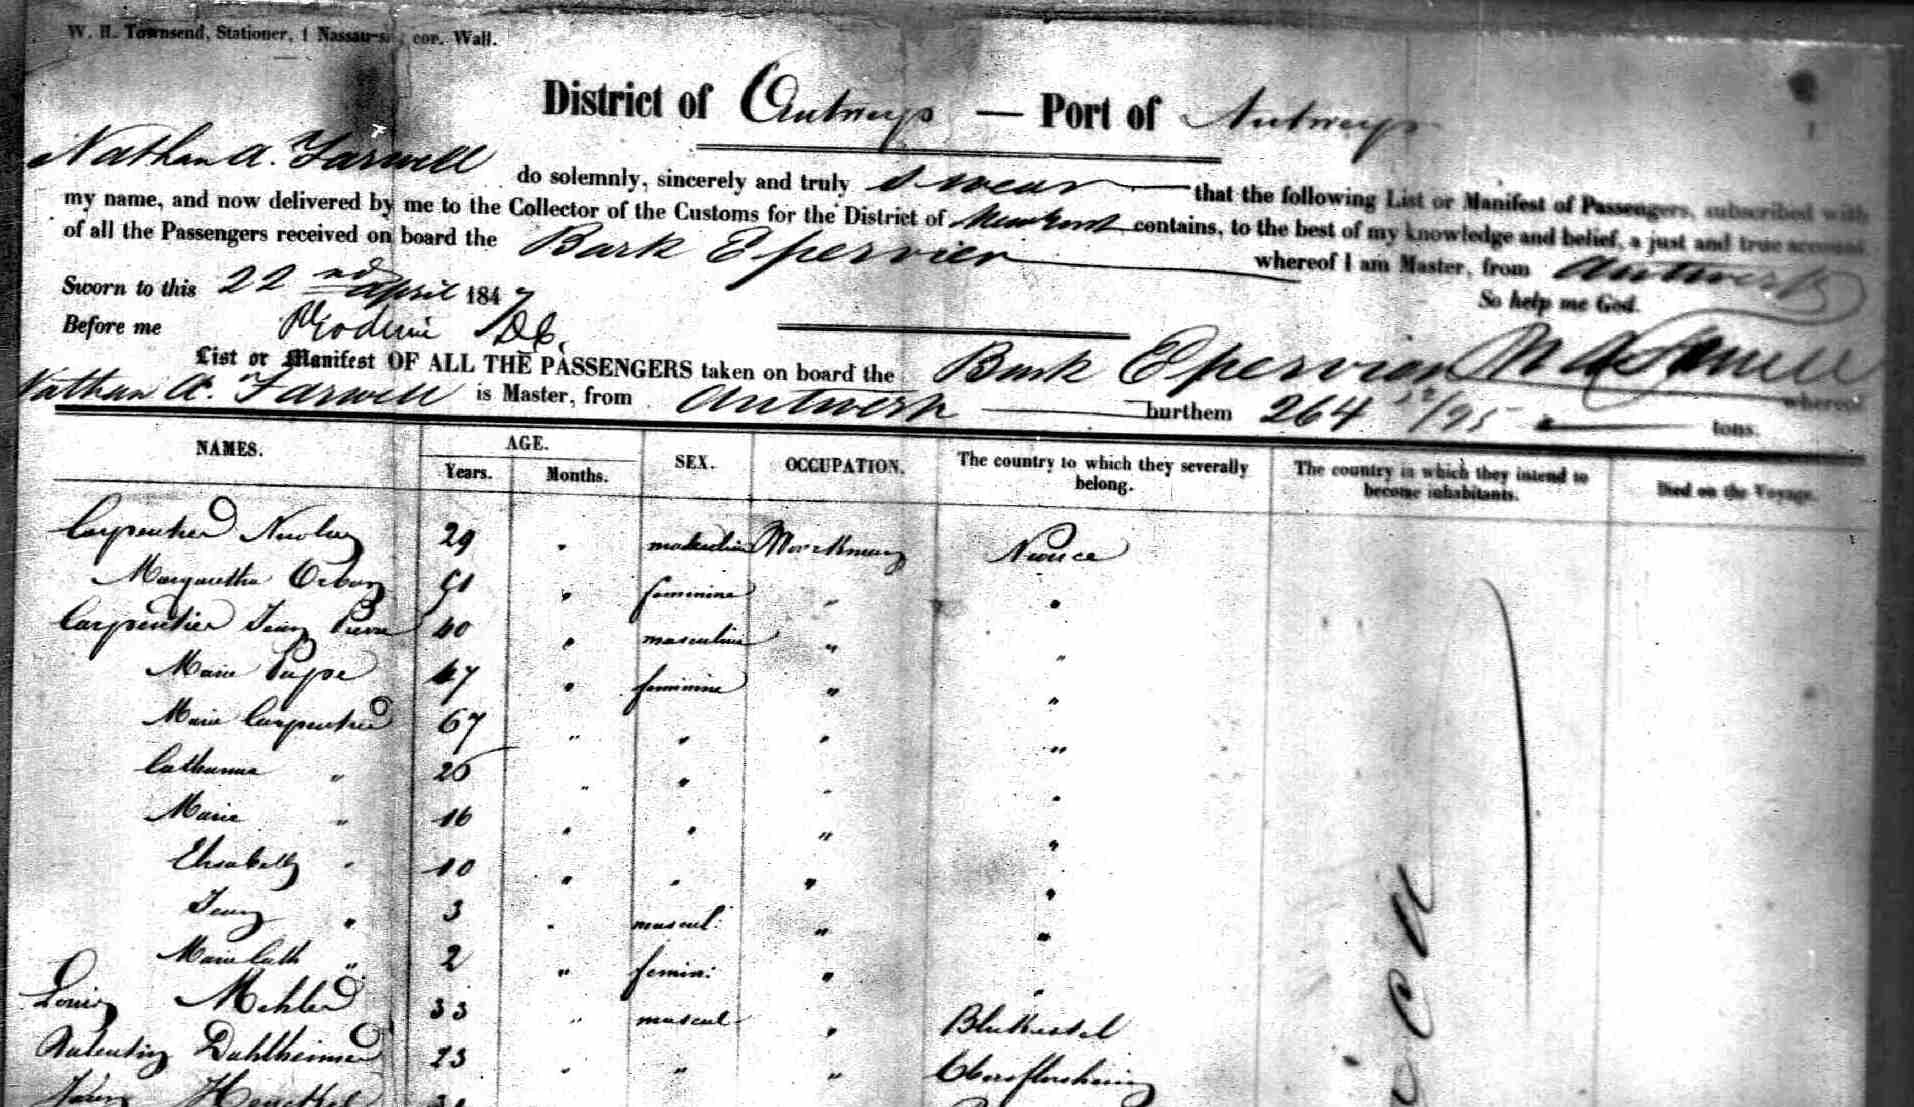 W. H. Townsend, Stationer, 1 Nassau-st. cor. Wall.
District of Antwerp — Port of Antwerp
Nathan A. Farwell do solemnly, sincerely and truly swear that the following List or Manifest of Passengers, subscribed with
my name, and now delivered by me to the Collector of the Customs for the District of New York contains, to the best of my knowledge and belief, a just and true account
of all the Passengers received on board the Bark Epervier whereof I am Master, from Antwerp
Sworn to this 22nd April 1847 So help me God.
Before me
List or Manifest OF ALL THE PASSENGERS taken on board the Bark Epervier N A Farwell whereof
Nathan A. Farwell is Master, from Antwerp burthem 264 52/95 tons.
NAMES. AGE. SEX. OCCUPATION. The country to which they severally belong. The country in which they intend to become inhabitants. Died on the Voyage.
Years. Months.
Carpentier 29 " masculin
Margaretha 51 " feminine " "
Carpentier Jean Pierre 40 " masculine " "
Marie Pape 47 " feminine " "
Marie Carpentier 67 " " " "
Catharina " 26 " " " "
Marie " 16 " " " "
Elisabeth " 10 " " " "
Jean " 3 " mascul: " "
Marie Cath " 2 " femin: " "
Louis Mehler 33 " mascul "
Valentin Dahlheimer 23 " " "
Henckel